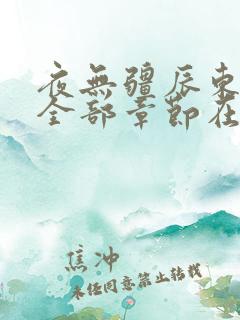 夜無疆辰东
全部章節在
焦冲
未经同意禁止转载